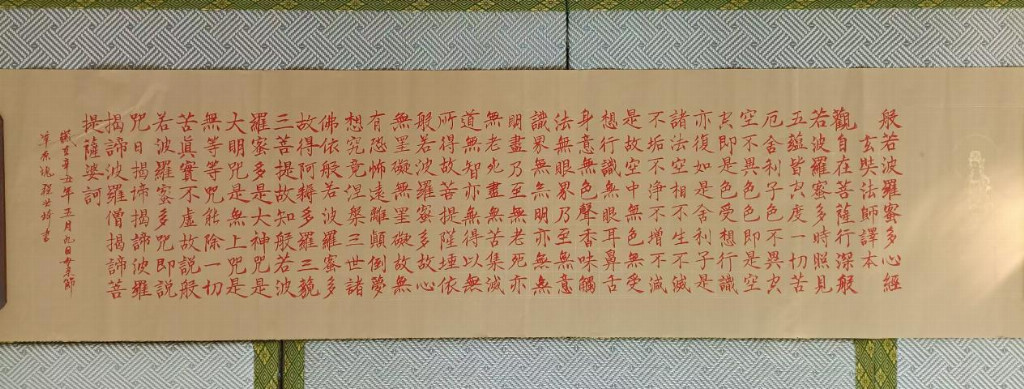 般若波羅蜜多心經
玄奘法師譯本
觀自在菩薩行深般
若波羅蜜多時照見
五蘊皆空度一切苦
厄舍利子色不異空
空不異色色即是空
空即是色受想行識
亦復如是舍利子是
諸法空相不生不滅
不垢不淨不增不減
是故空中無色無受
想行識無眼耳鼻舌
身意無色聲香味觸
法無眼界乃至無意
識界無無明亦無無
明盡乃至無老死亦
無老死盡無苦集滅
道無智亦無得以無
所得故菩提薩埵依
般若波羅蜜多故心
無罣礙無罣礙故無
有恐怖遠離顛倒夢
想究竟涅槃三世諸
佛依般若波羅蜜多
故得阿耨多羅三藐
三菩提故知般若波
羅蜜多是大神咒是
大明咒是無上咒是
無等等咒能除一切
苦真實不虛故説般
若波羅蜜多咒即説
咒曰揭諦揭諦波羅
揭諦波羅僧揭諦菩
提薩婆訶
辛丑年五月九日
書